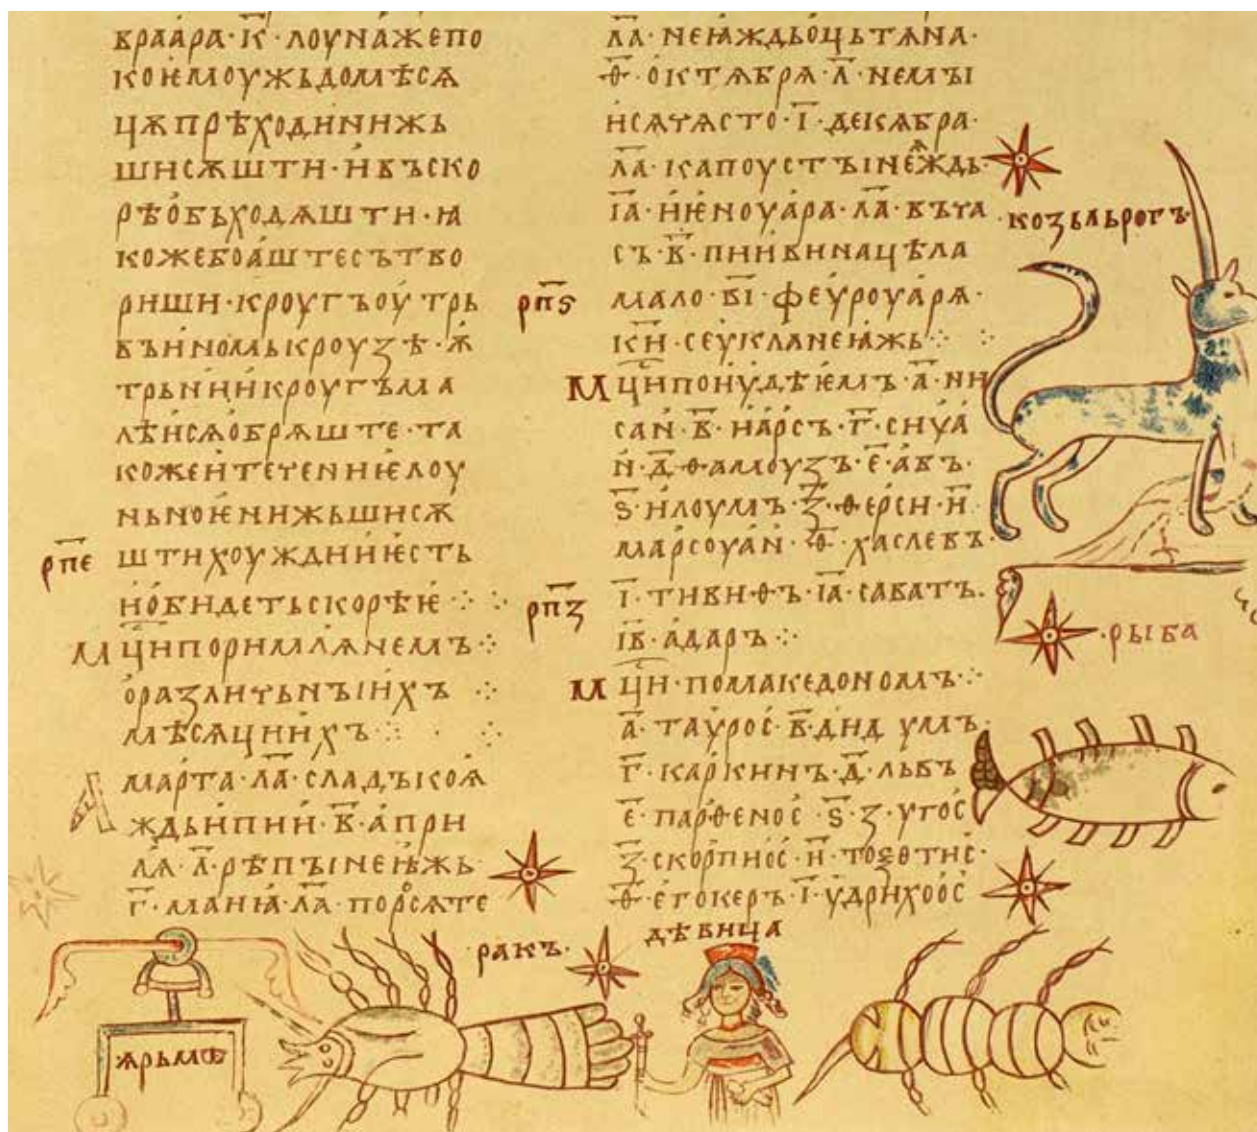 враа́ра· к҃ ·лоуна́же по
коѥмоужьдомѣсѧ
цѫ прѣходи́ нижь
шисѫшти· и́въско
рѣ о́бьходѧшти· ꙗ
коже боа́ште сътво
риши· кроугъ оу́трь
вън номь кроузѣ· ѫ́
трьни́и кроугъ ма
лѣи́ сѧ о́брѧште· та
коже и́ течениѥ лоу
ньноѥ нижьшисѫ
рп҃е
штихоуждии́ ѥсть
и́о́бидеть скорѣѥ ⁘ ⁘
Мц҃и поримлѧнемъ ⁘
о́различьнꙑи́хъ ⁘
мѣсѧции́хъ ⁘
А҃
марта· ла҃ ·сладъкоѫ
ждьи́пии́· в҃· а́при
лѧ· л҃· рѣпꙑ неꙗ́жь
г҃· маиꙗ́· ла҃· порсѧте
ла҃· неꙗждь о́цьтѧна·
ѳ҃· октѧбрѧ· л҃· немꙑ
и́сѧчѧсто· і҃· декѧбра·
ла҃· капоустꙑ неꙗждь·
іа҃· и́ѥ́ноуа́ра· ла҃· въча
съ· в҃· пии́ вина цѣла
рп҃ѕ
мало· ві҃· феу́роуа́рѧ·
ки҃· сеу́кла неꙗжь ⁘ ⁘
Мц҃и по ию́дѣѥмъ· а҃· ни
са́н· в҃· иа́рсъ· г҃· сиуа́
н· д҃· ѳамоузъ· е҃· а́въ·
ѕ҃· и́лоумъ· з҃· ѳерси· и҃·
марсоуа́н· ѳ҃· хаслевъ·
рп҃з
і҃· тивиѳъ· іа҃· саватъ·
ів҃· а́даръ ⁘
Мц҃и· помакедономъ ⁘
а҃· тау́рос· в҃· дид умъ·
г҃· каркинъ· д҃· львъ
е҃· парѳенос· ѕ҃· з·угос
з҃· скорпио́с· и҃· тоѯѳтис·
ѳ҃· е́гокеръ· і҃· у́дрихоо́с
козьльрогъ·
·рꙑба
ракъ·
дѣвица
ѫрьмъ